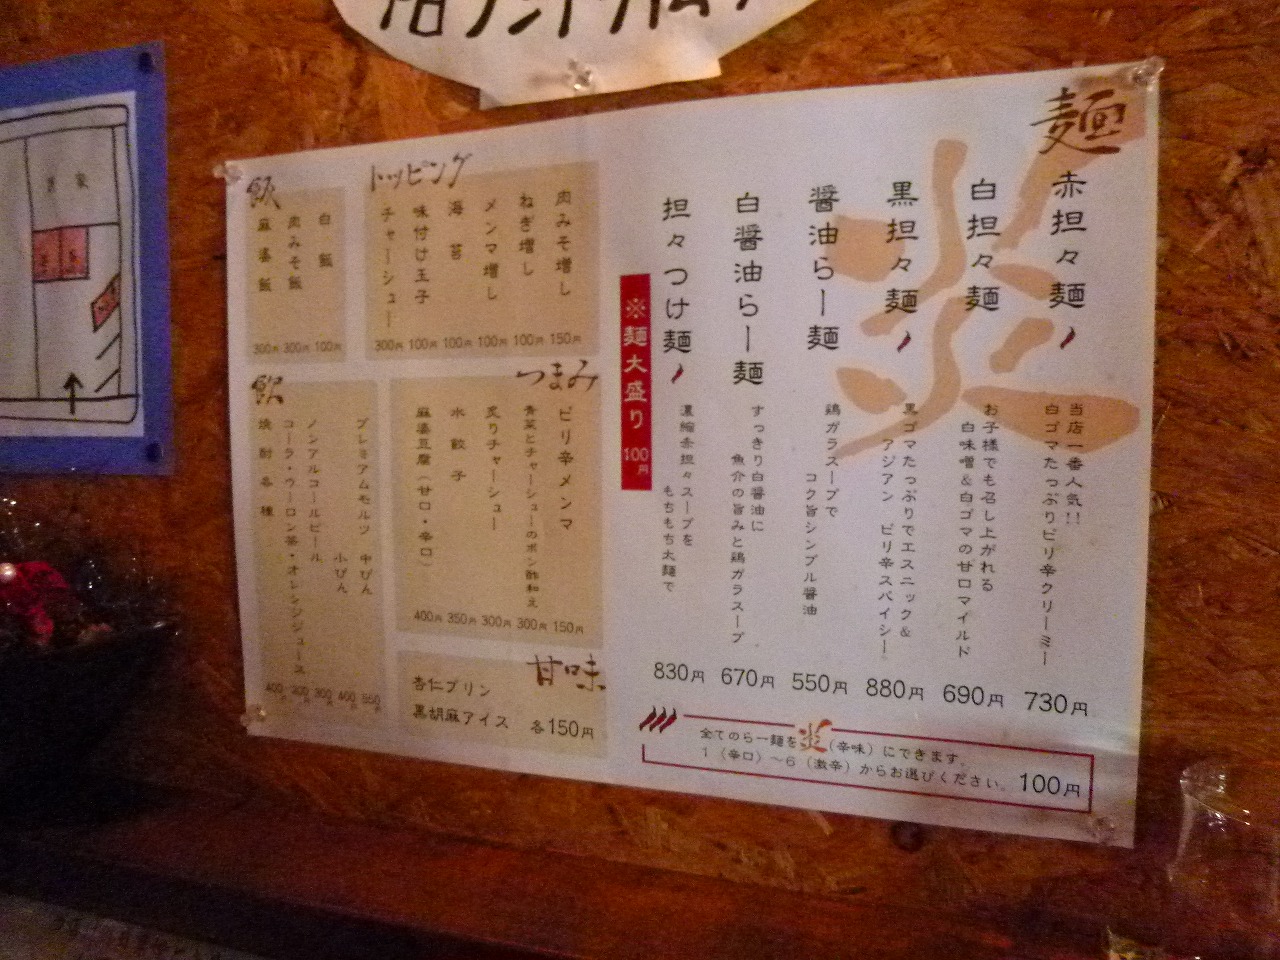 麺
赤担々麺
当店一番人気!!
白ゴマたっぷりピリ辛クリーミー
730円
白担々麺
お子様でも召し上がれる
白味噌&白ゴマの甘口マイルド
690円
黒担々麺
黒ゴマたっぷりでエスニック&
アジアン ピリ辛スパイシー
880円
醤油らー麺
鶏ガラスープで
コク旨シンプル醤油
550円
白醤油らー麺
すっきり白醤油に
魚介の旨みと鶏ガラスープ
670円
担々つけ麺
濃縮赤担々スープを
もちもち太麺で
830円
※麺大盛り 100円
全てのらー麺を炎(辛味)にできます。
1(辛口)〜6(激辛)からお選びください。 100円
トッピング
肉みそ増し 150円
ねぎ増し 100円
メンマ増し 100円
海苔 100円
味付け玉子 100円
チャーシュー 300円
飯
白飯 100円
肉みそ飯 300円
麻婆飯 300円
つまみ
ピリ辛メンマ 150円
青菜とチャーシューのポン酢和え 300円
炙りチャーシュー 300円
水餃子 350円
麻婆豆腐(甘口・辛口) 400円
飲
プレミアムモルツ 中びん 550円
小びん 400円
ノンアルコールビール 300円
コーラ・ウーロン茶・オレンジジュース 200円
焼酎各種 400円
甘味
杏仁プリン
黒胡麻アイス 各150円